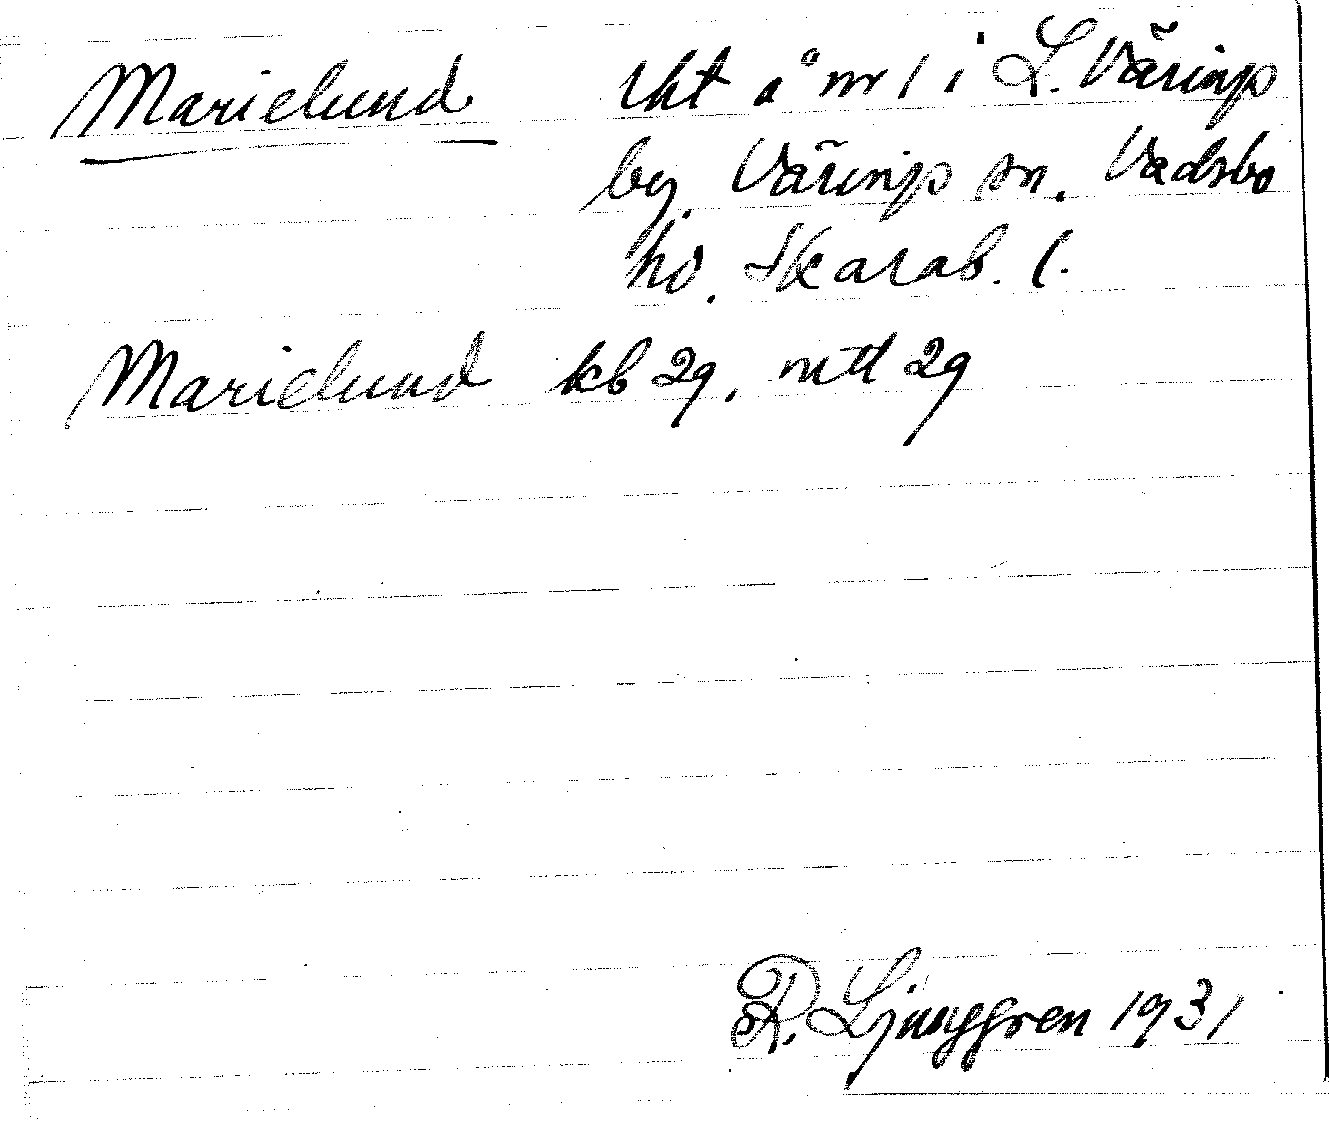 Marielund lht å nr 1 i L. Väring
by Väring sn. Vadsbo
hd. Skarab. l.
Marielund kb 29, mtl 29
R. Ljunggren 1931